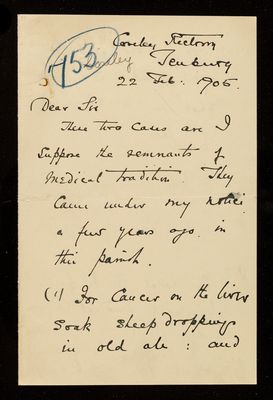 753
Coreley Rectory
Tenbury
22 Feb. 1906.
Dear Sir
These two cases are I
suppose the remnants of
medical tradition. They
came under my notice
a few years ago in
this parish.
(1) For Cancer on the liver
soak sheep droppings
in old ale : and